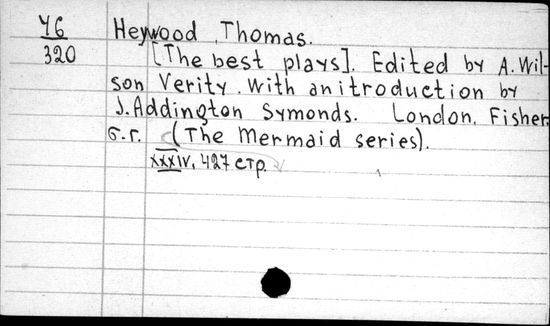 46 Heywood Thomas.
320 [The best plays]. Edited by A. Wil-
son Verity. With an itroduction by
J. Addington Symonds. London. Fisher.
б.г. (The Mermaid series).
XXXIV, 427 стр.